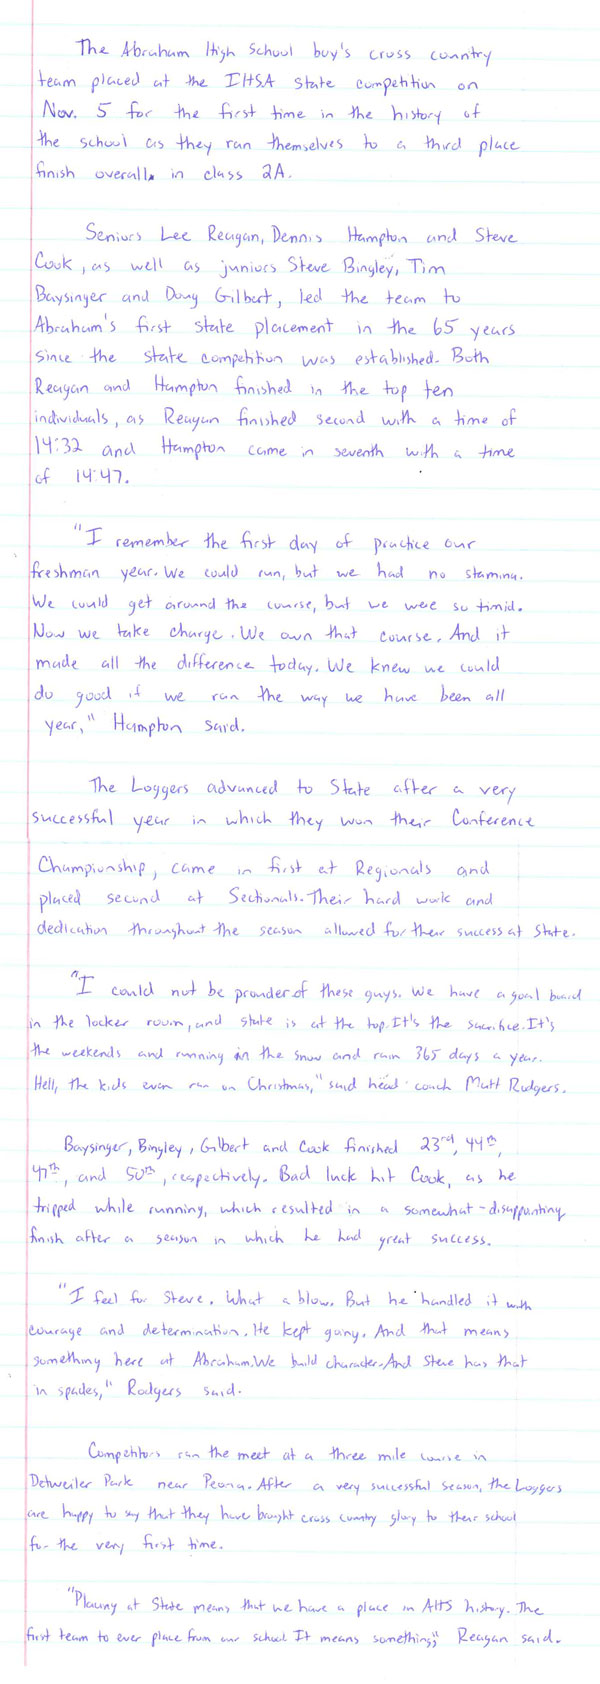 The Abraham High School boy's cross country
team placed at the IHSA state competition on
Nov. 5 for the first time in the history of
the school as they ran themselves to a third place
finish overall. in class 2A.
Seniors Lee Reagan, Dennis Hampton and Steve
Cook, as well as juniors Steve Bingley, Tim
Baysinger and Doug Gilbert, led the team to
Abraham's first state placement in the 65 years
since the state competition was established. Both
Reagan and Hampton finished in the top ten
individuals, as Reagan finished second with a time of
14:32 and Hampton came in seventh with a time
of 14:47.
"I remember the first day of practice our
freshman year. We could run, but we had no stamina.
We could get around the course, but we were so timid.
Now we take charge. We own that course. And it
made all the difference today. We knew we could
do good if we ran the way we have been all
year," Hampton said.
The Loggers advanced to State after a very
successful year in which they won their Conference
Championship, came in first at Regionals and
placed second at Sectionals. Their hard work and
dedication throughout the season allowed for their success at State.
"I could not be prouder of these guys. We have a goal board
in the locker room, and state is at the top. It's the sacrifice. It's
the weekends and running in the snow and rain 365 days a year.
Hell, the kids even ran on Christmas," said head coach Matt Rodgers.
Baysinger, Bingley, Gilbert and Cook finished 23rd, 44th,
47th, and 50th, respectively. Bad luck hit Cook, as he
tripped while running, which resulted in a somewhat-disappointing
finish after a season in which he had great success.
"I feel for Steve. What a blow. But he handled it with
courage and determination. He kept going. And that means
something here at Abraham. We build character. And Steve has that
in spades," Rodgers said.
Competitors ran the meet at a three mile course in
Detweiler Park near Peoria. After a very successful season, the Loggers
are happy to say that they have brought cross country glory to their school
for the very first time.
"Placing at State means that we have a place in AHS history. The
first team to ever place from our school. It means something," Reagan said.